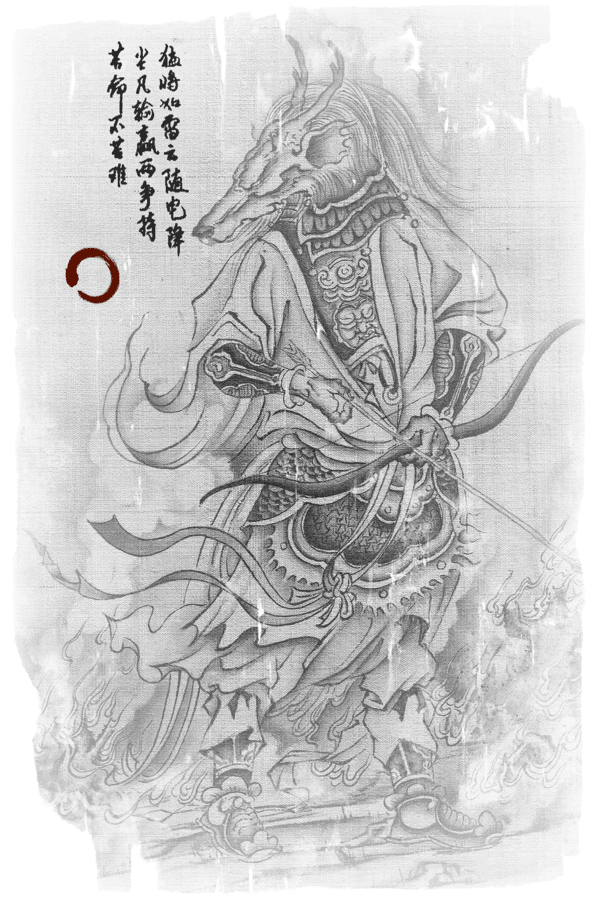 猛将如雷云随电降
尘凡输赢两争持
苦命不苦难